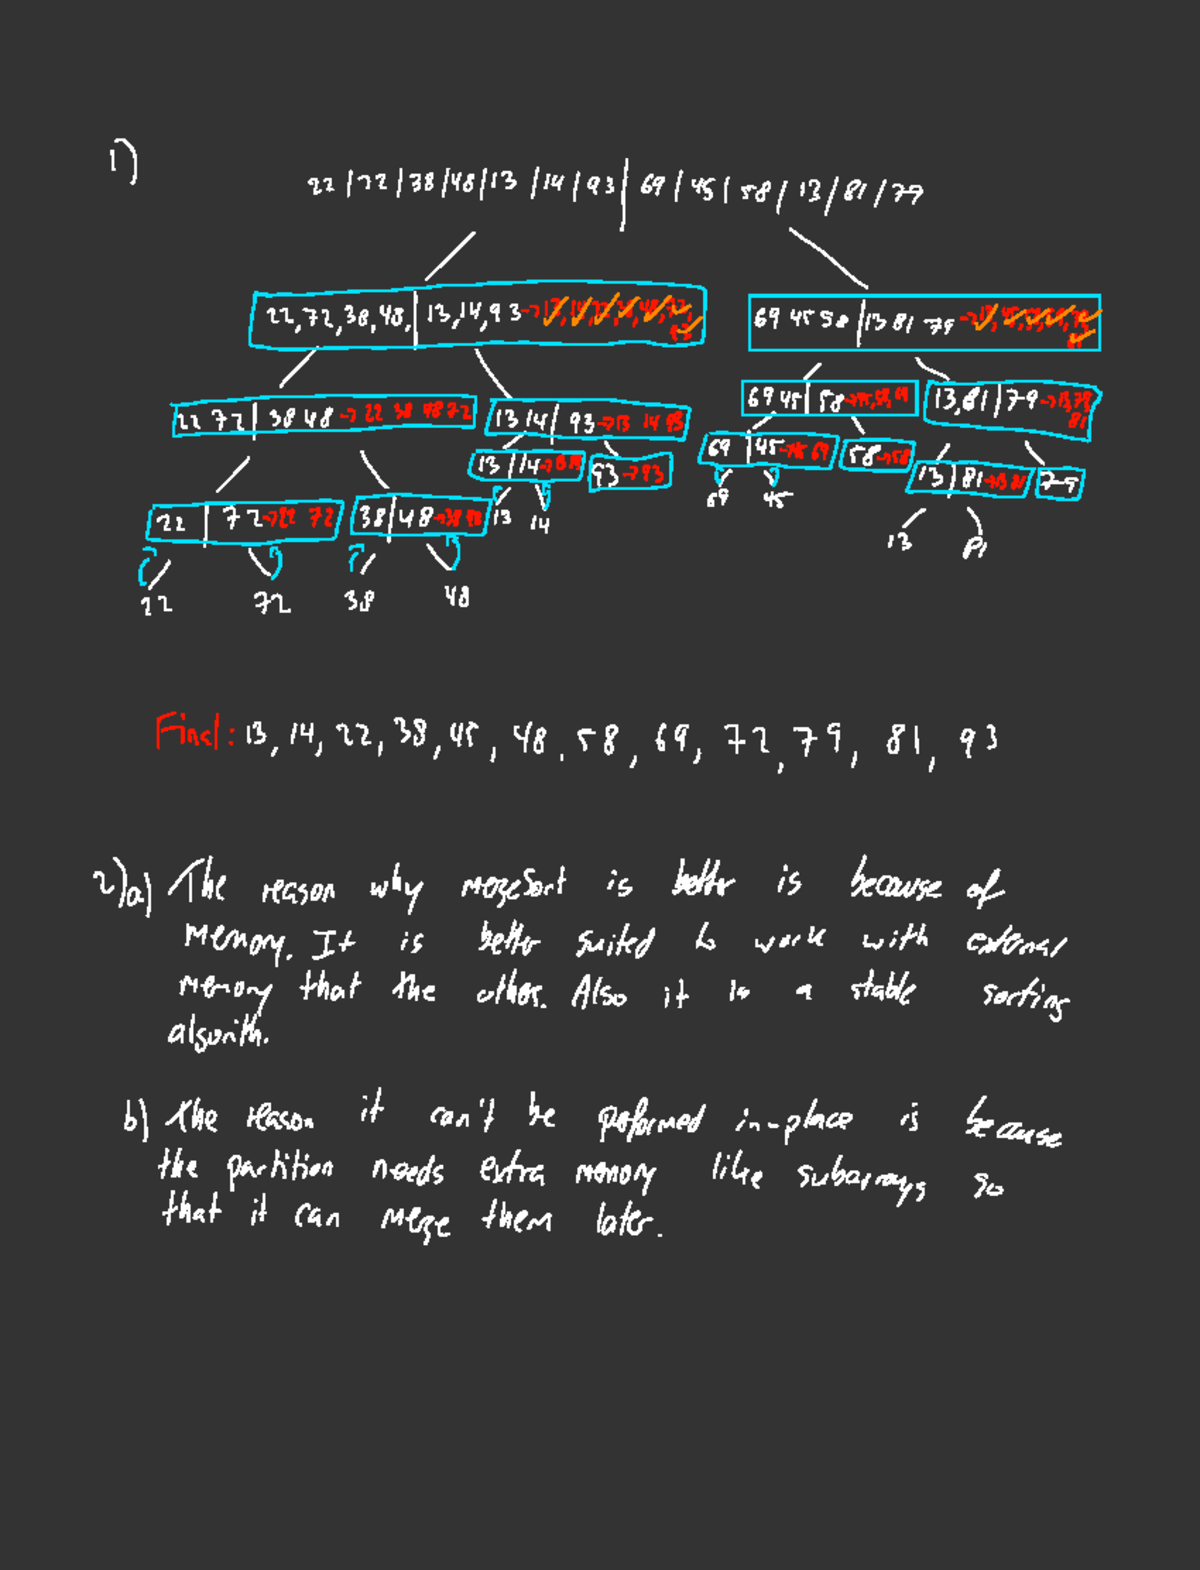 1)
22 / 72 / 38 / 48 / 13 / 14 / 93 | 69 / 45 / 58 / 13 / 81 / 79
22, 72, 38, 48, | 13, 14, 93 →
69 45 58 | 13 81 79 →
22 72 | 38 48 → 22 38 48 72
13 14 | 93 → 13 14 93
69 45 | 58 → 45, 58, 69
13, 81 | 79 → 13, 79
81
13 | 14 →
93 → 93
69 | 45 → 45 69
58 → 58
13 | 81 → 13 81
79
22 | 72 → 22 72
38 | 48 → 38 48
13 14
69 45
13 81
22 72 38 48
Final: 13, 14, 22, 38, 45, 48, 58, 69, 72, 79, 81, 93
2)a) The reason why mergeSort is better is because of
memory. It is better suited to work with external
memory that the other. Also it is a stable sorting
algorith.
b) The reason it can't be performed in-place is because
the partition needs extra memory like subarrays so
that it can merge them later.